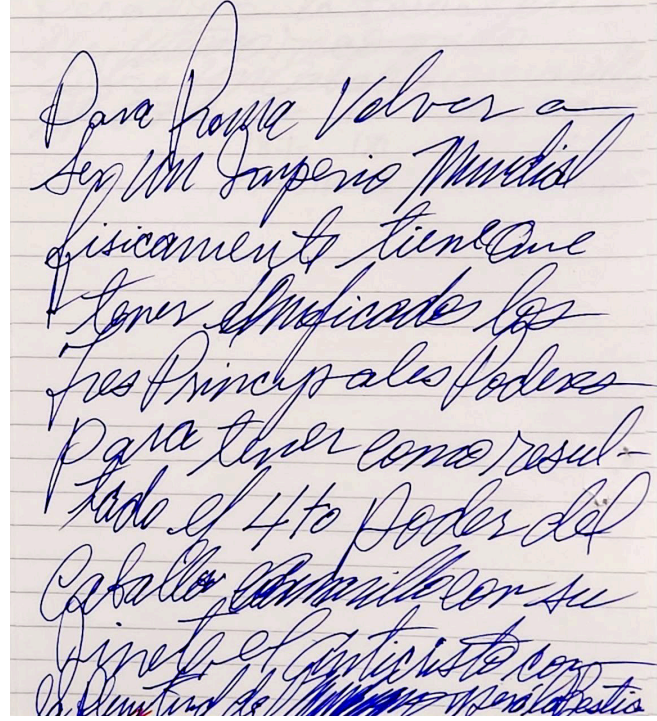 Para Roma Volver a
ser un Imperio Mundial
fisicamente tiene que
tener unificados los
tres Principales Poderes
para tener como resul-
tado el 4to poder del
Caballo amarillo con su
Jinete el anticristo con
la plenitud de será la Bestia